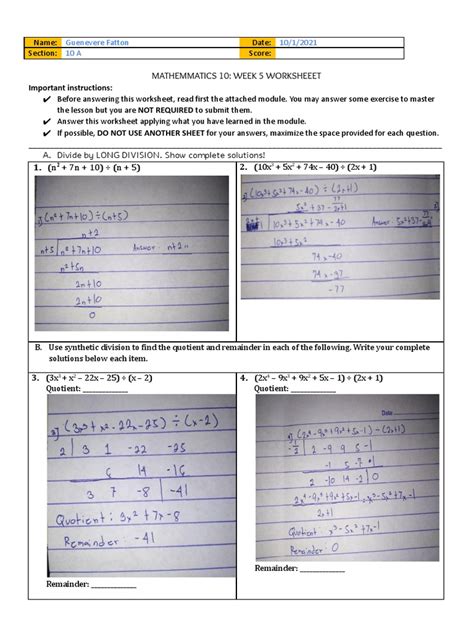 Name: Guenevere Fatton Date: 10/1/2021
Section: 10 A Score:
MATHEMMATICS 10: WEEK 5 WORKSHEEET
Important instructions:
✔ Before answering this worksheet, read first the attached module. You may answer some exercise to master
the lesson but you are NOT REQUIRED to submit them.
✔ Answer this worksheet applying what you have learned in the module.
✔ If possible, DO NOT USE ANOTHER SHEET for your answers, maximize the space provided for each question.
A. Divide by LONG DIVISION. Show complete solutions!
1. (n² + 7n + 10) ÷ (n + 5)
(n²+7n+10) ÷ (n+5)
n+2
n+5 n²+7n+10
n²+5n
2n+10
2n+10
0
2. (10x³ + 5x² + 74x – 40) ÷ (2x + 1)
(10x³+5x²+74x-40) ÷ (2x+1)
10x³+5x²+74x-40
10x³+5x²
74x-40
-77
B. Use synthetic division to find the quotient and remainder in each of the following. Write your complete
solutions below each item.
3. (3x³ + x² – 22x – 25) ÷ (x – 2)
Quotient:
(3x³+x²-22x-25) ÷ (x-2)
2 3 1 -22 -25
6 14 -16
3 7 -8 -41
Quotient: 3x²+7x-8
Remainder: -41
Remainder:
4. (2x⁴ – 9x³ + 9x² + 5x – 1) ÷ (2x + 1)
Quotient:
Date
2 -9 9 5 -1
-1 5 -7 1
2 -10 14 -2 0
2x+1
Quotient: x³-5x²+7x-1
Remainder: 0
Remainder: